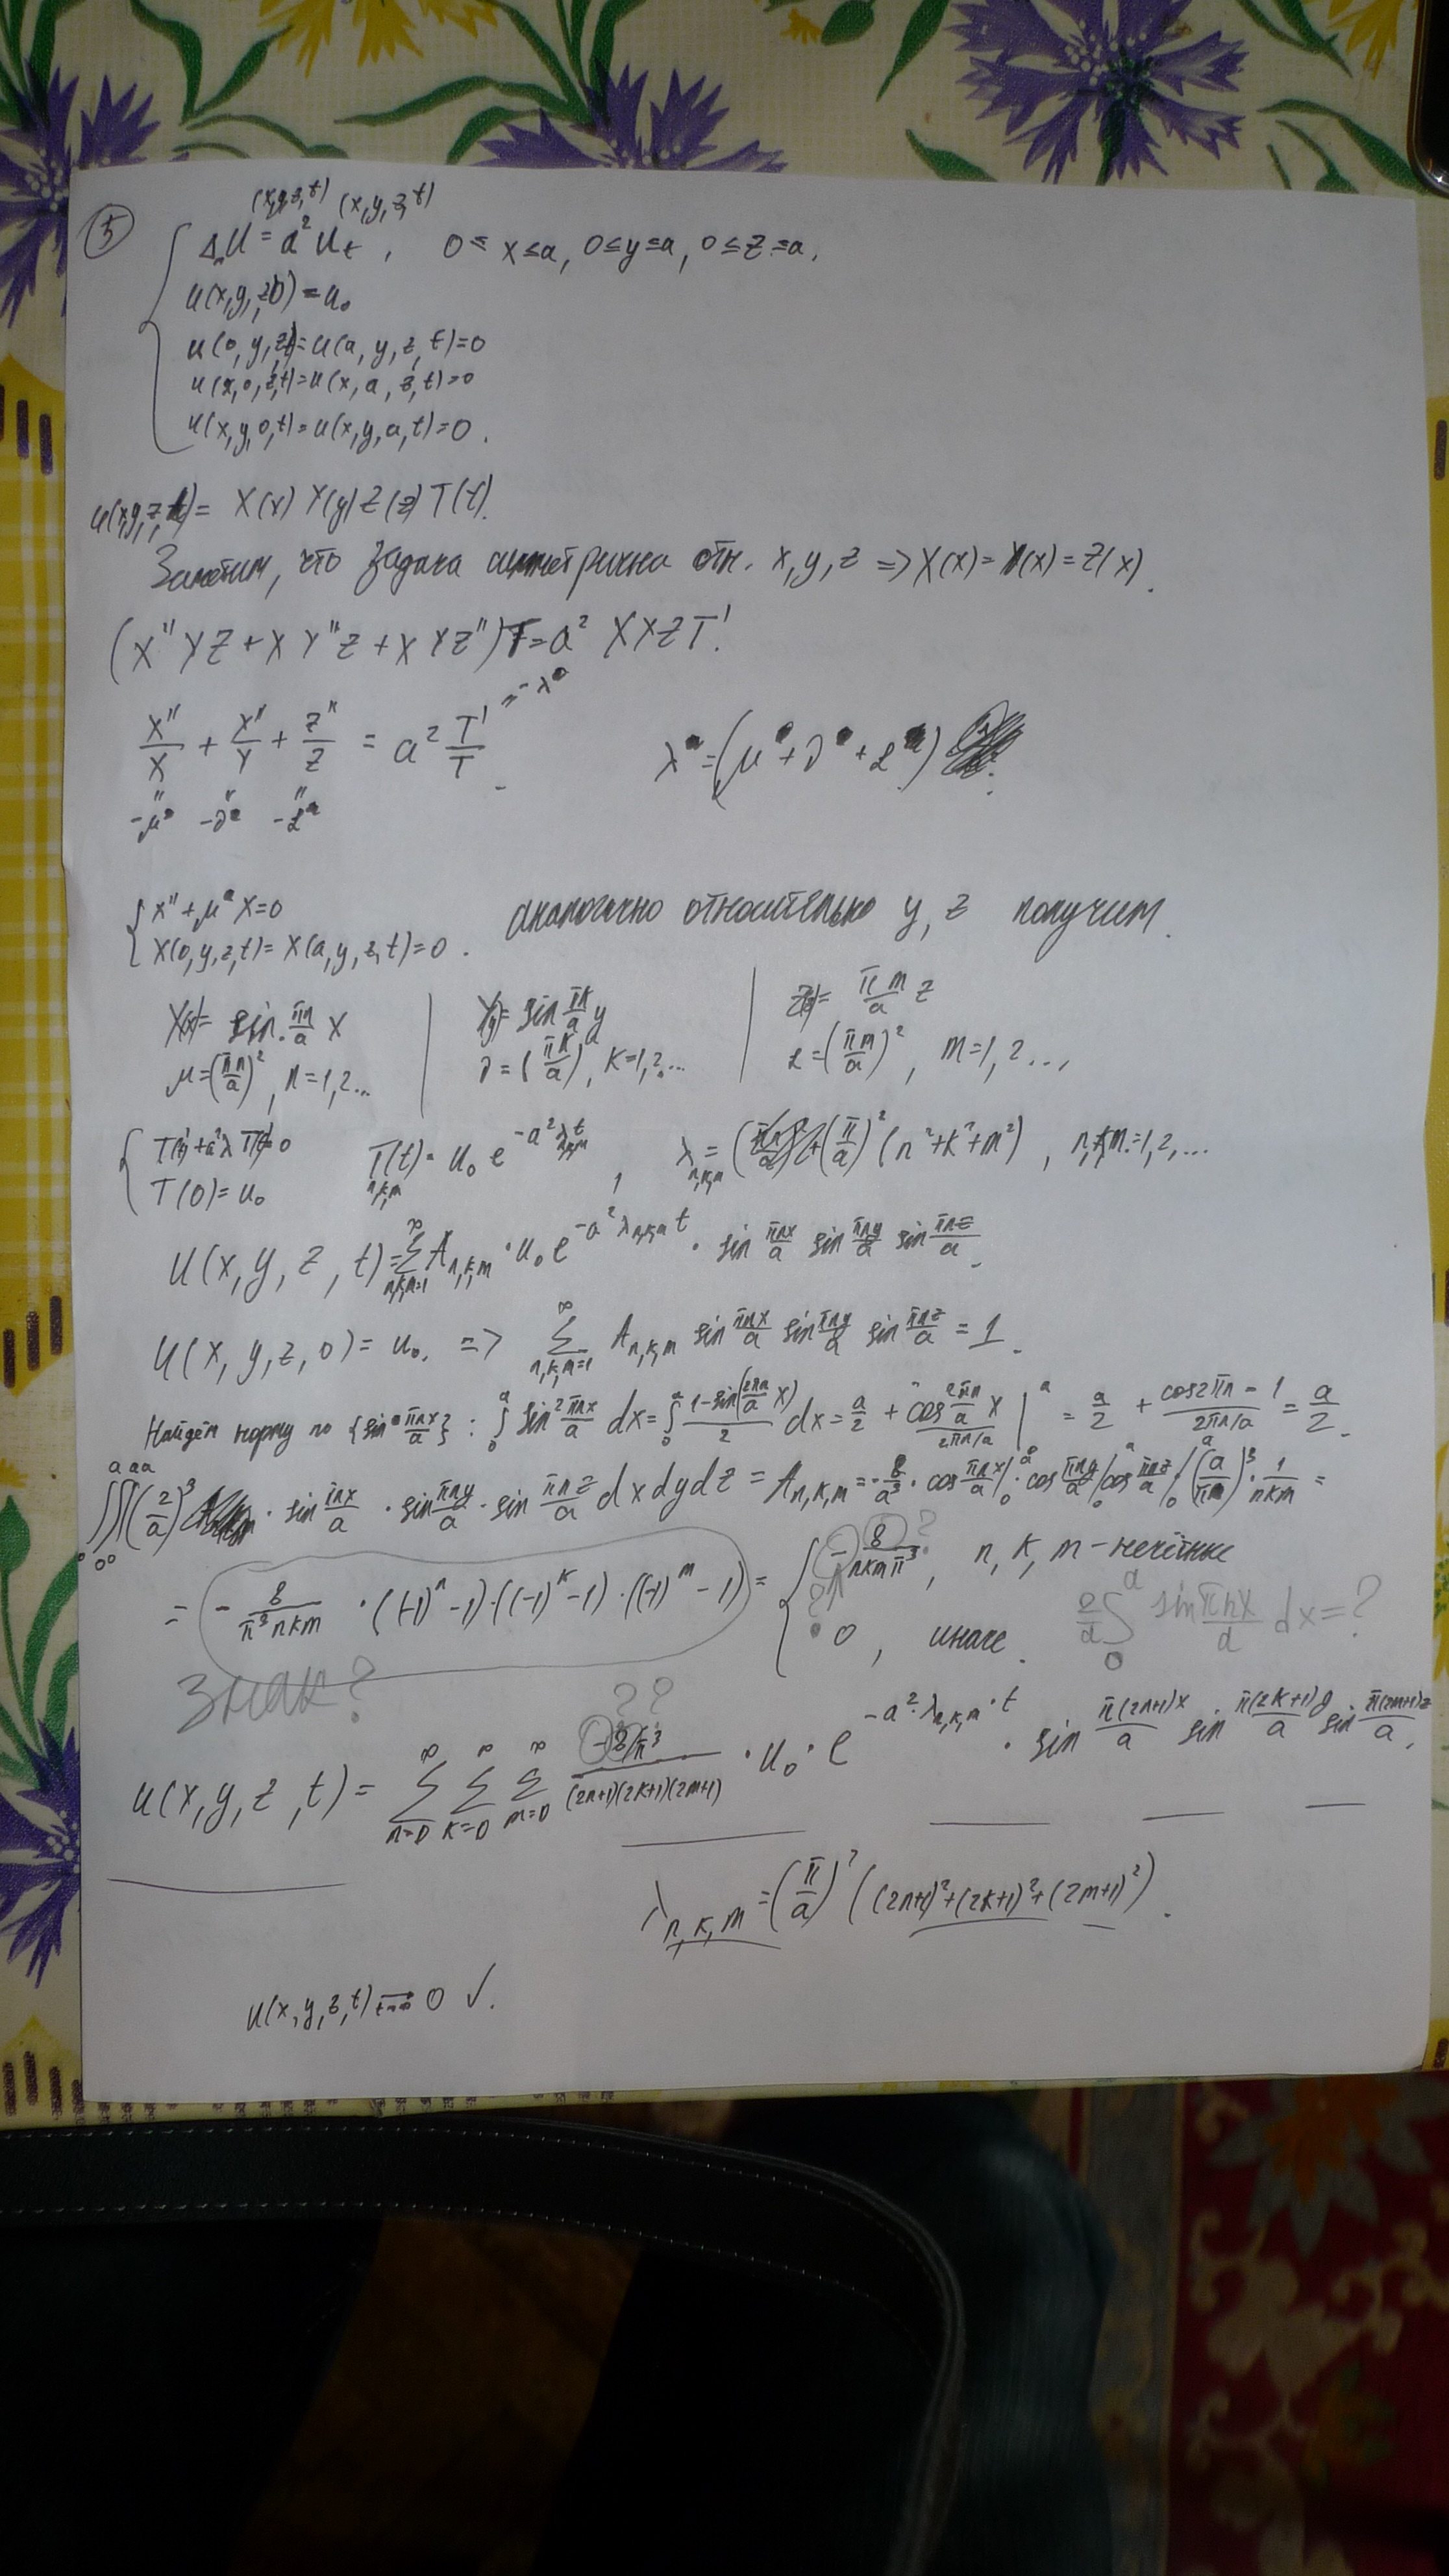 (x,y,z,t) (x,y,z,t)
⑤ Δu = a² u_t , 0 ≤ x ≤ a, 0 ≤ y ≤ a, 0 ≤ z ≤ a.
u(x,y,z,0) = u₀
u(0,y,z,t) = u(a,y,z,t) = 0
u(x,0,z,t) = u(x,a,z,t) = 0
u(x,y,0,t) = u(x,y,a,t) = 0.
u(x,y,z,t) = X(x) Y(y) Z(z) T(t).
Заметим, что задача симметрична отн. x, y, z => X(x) = Y(x) = Z(x).
(X''YZ + XY''Z + XYZ'')T = a² XYZT'.
X''/X + Y''/Y + Z''/Z = a² T'/T = -λ. λ = (μ + ∂ + L)
-μ -∂ -L
{ X'' + μX = 0
X(0,y,z,t) = X(a,y,z,t) = 0. аналогично относительно y, z получим.
X(x) = sin πn/a x | Y(y) = sin πk/a y | Z(z) = πm/a z
μ = (πn/a)², n = 1,2... | ∂ = (πk/a)², k = 1,2,... | L = (πm/a)², m = 1,2...,
{ T'(t) + a²λT(t) = 0 T_{n,k,m}(t) = u₀ e^{-a²λ_{n,k,m}t}, λ_{n,k,m} = (π/a)² (n² + k² + m²), n,k,m = 1,2,...
T(0) = u₀
u(x,y,z,t) = Σ_{n,k,m=1}^∞ A_{n,k,m} · u₀ e^{-a²λ_{n,k,m}t} · sin πnx/a sin πny/a sin πnz/a.
u(x,y,z,0) = u₀. => Σ_{n,k,m=1}^∞ A_{n,k,m} sin πnx/a sin πny/a sin πnz/a = 1.
Найдём норму по {sin πnx/a} : ∫₀^a sin² πnx/a dx = ∫₀^a (1 - sin(2πn/a x))/2 dx = a/2 + (cos 2πn/a x)/(2πn/a) |^a = a/2 + (cos2πn - 1)/(2πn/a) = a/2.
∫₀^a∫₀^a∫₀^a (2/a)³ · sin πnx/a · sin πny/a · sin πnz/a dxdydz = A_{n,k,m} = -8/a³ · cos πnx/a |₀^a · cos πny/a |₀^a cos πnz/a |₀^a · (a/π)³ · 1/nkm =
= - 8/(π³nkm) · ((-1)ⁿ - 1) · ((-1)^k - 1) · ((-1)^m - 1) = { - 8/(nkmπ³) ?, n, k, m - нечётные
? 0, иначе. 2/a ∫₀^a sin πnx/a dx = ?
знак?
??
u(x,y,z,t) = Σ_{n=0}^∞ Σ_{k=0}^∞ Σ_{m=0}^∞ (-8/π³)/((2n+1)(2k+1)(2m+1)) · u₀ · e^{-a²·λ_{n,k,m}·t} · sin π(2n+1)x/a sin π(2k+1)y/a sin π(2m+1)z/a.
λ_{n,k,m} = (π/a)² ((2n+1)² + (2k+1)² + (2m+1)²).
u(x,y,z,t) →_{t→∞} 0 ✓.